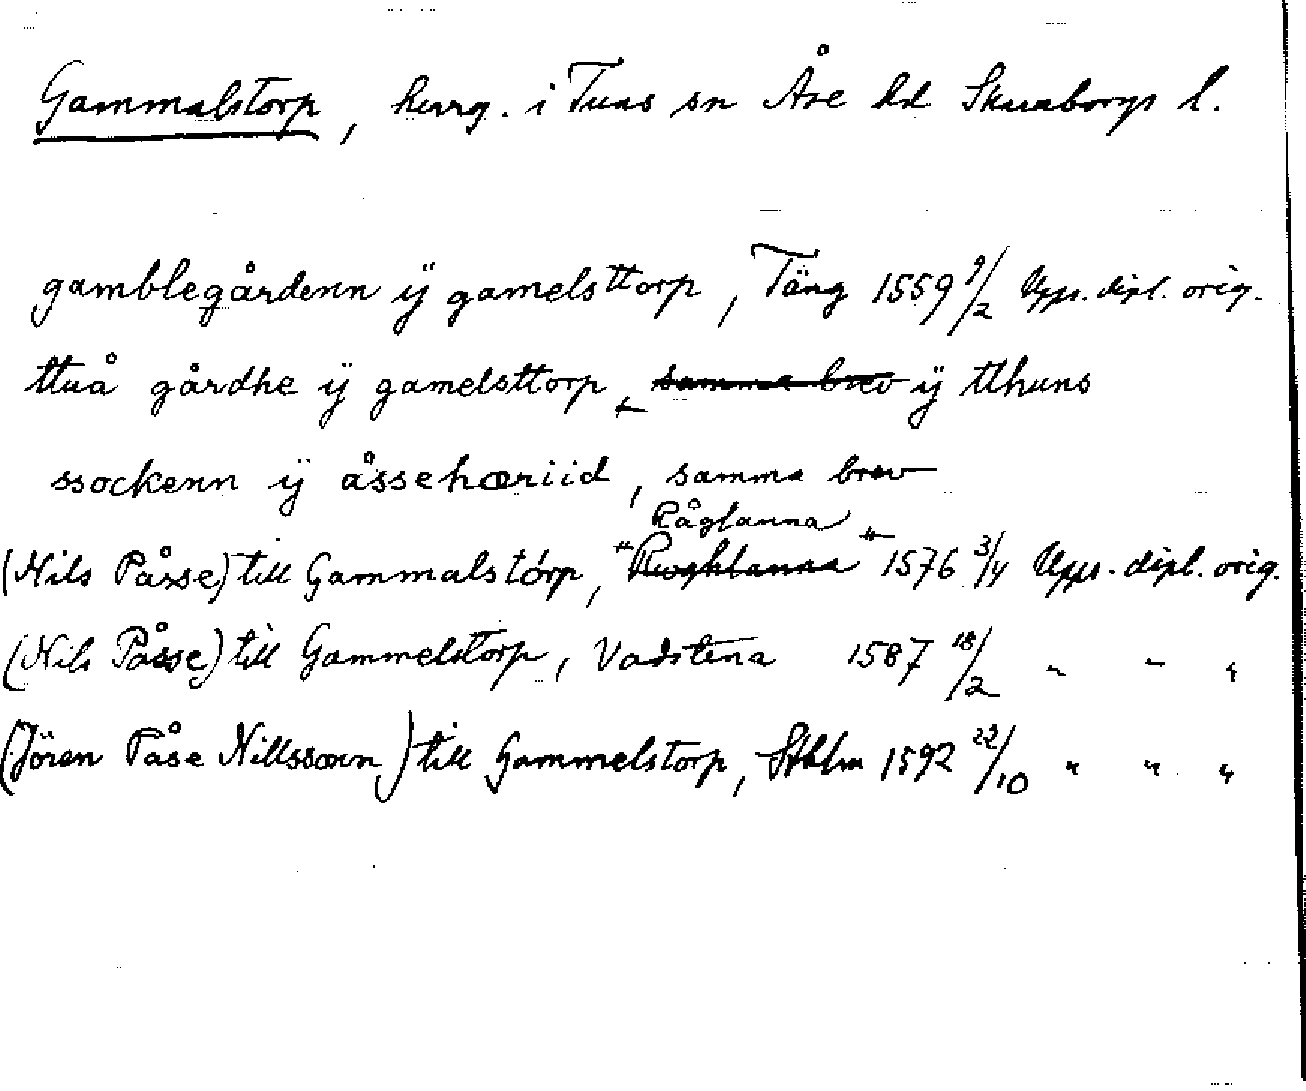 Gammalstorp, herrg. i Tuns sn Åse hd Skaraborgs l.
gamblegårdenn ÿ gamelsttorp, Täng 1559 9/2 Upps. dipl. orig.
ttuå gårdhe ÿ gamelsttorp, samma brev ÿ tthuns
ssockenn ÿ åssehæriid, samma brev
Råglanna
(Nils Påsse) till Gammalstorp, "Rwghlanna" 1576 3/4 Upps. dipl. orig.
(Nils Påsse) till Gammelstorp, Vadstena 1587 18/2 " " "
(Jören Påse Nillssonn) till Gammelstorp, Sthlm 1592 22/10 " " "